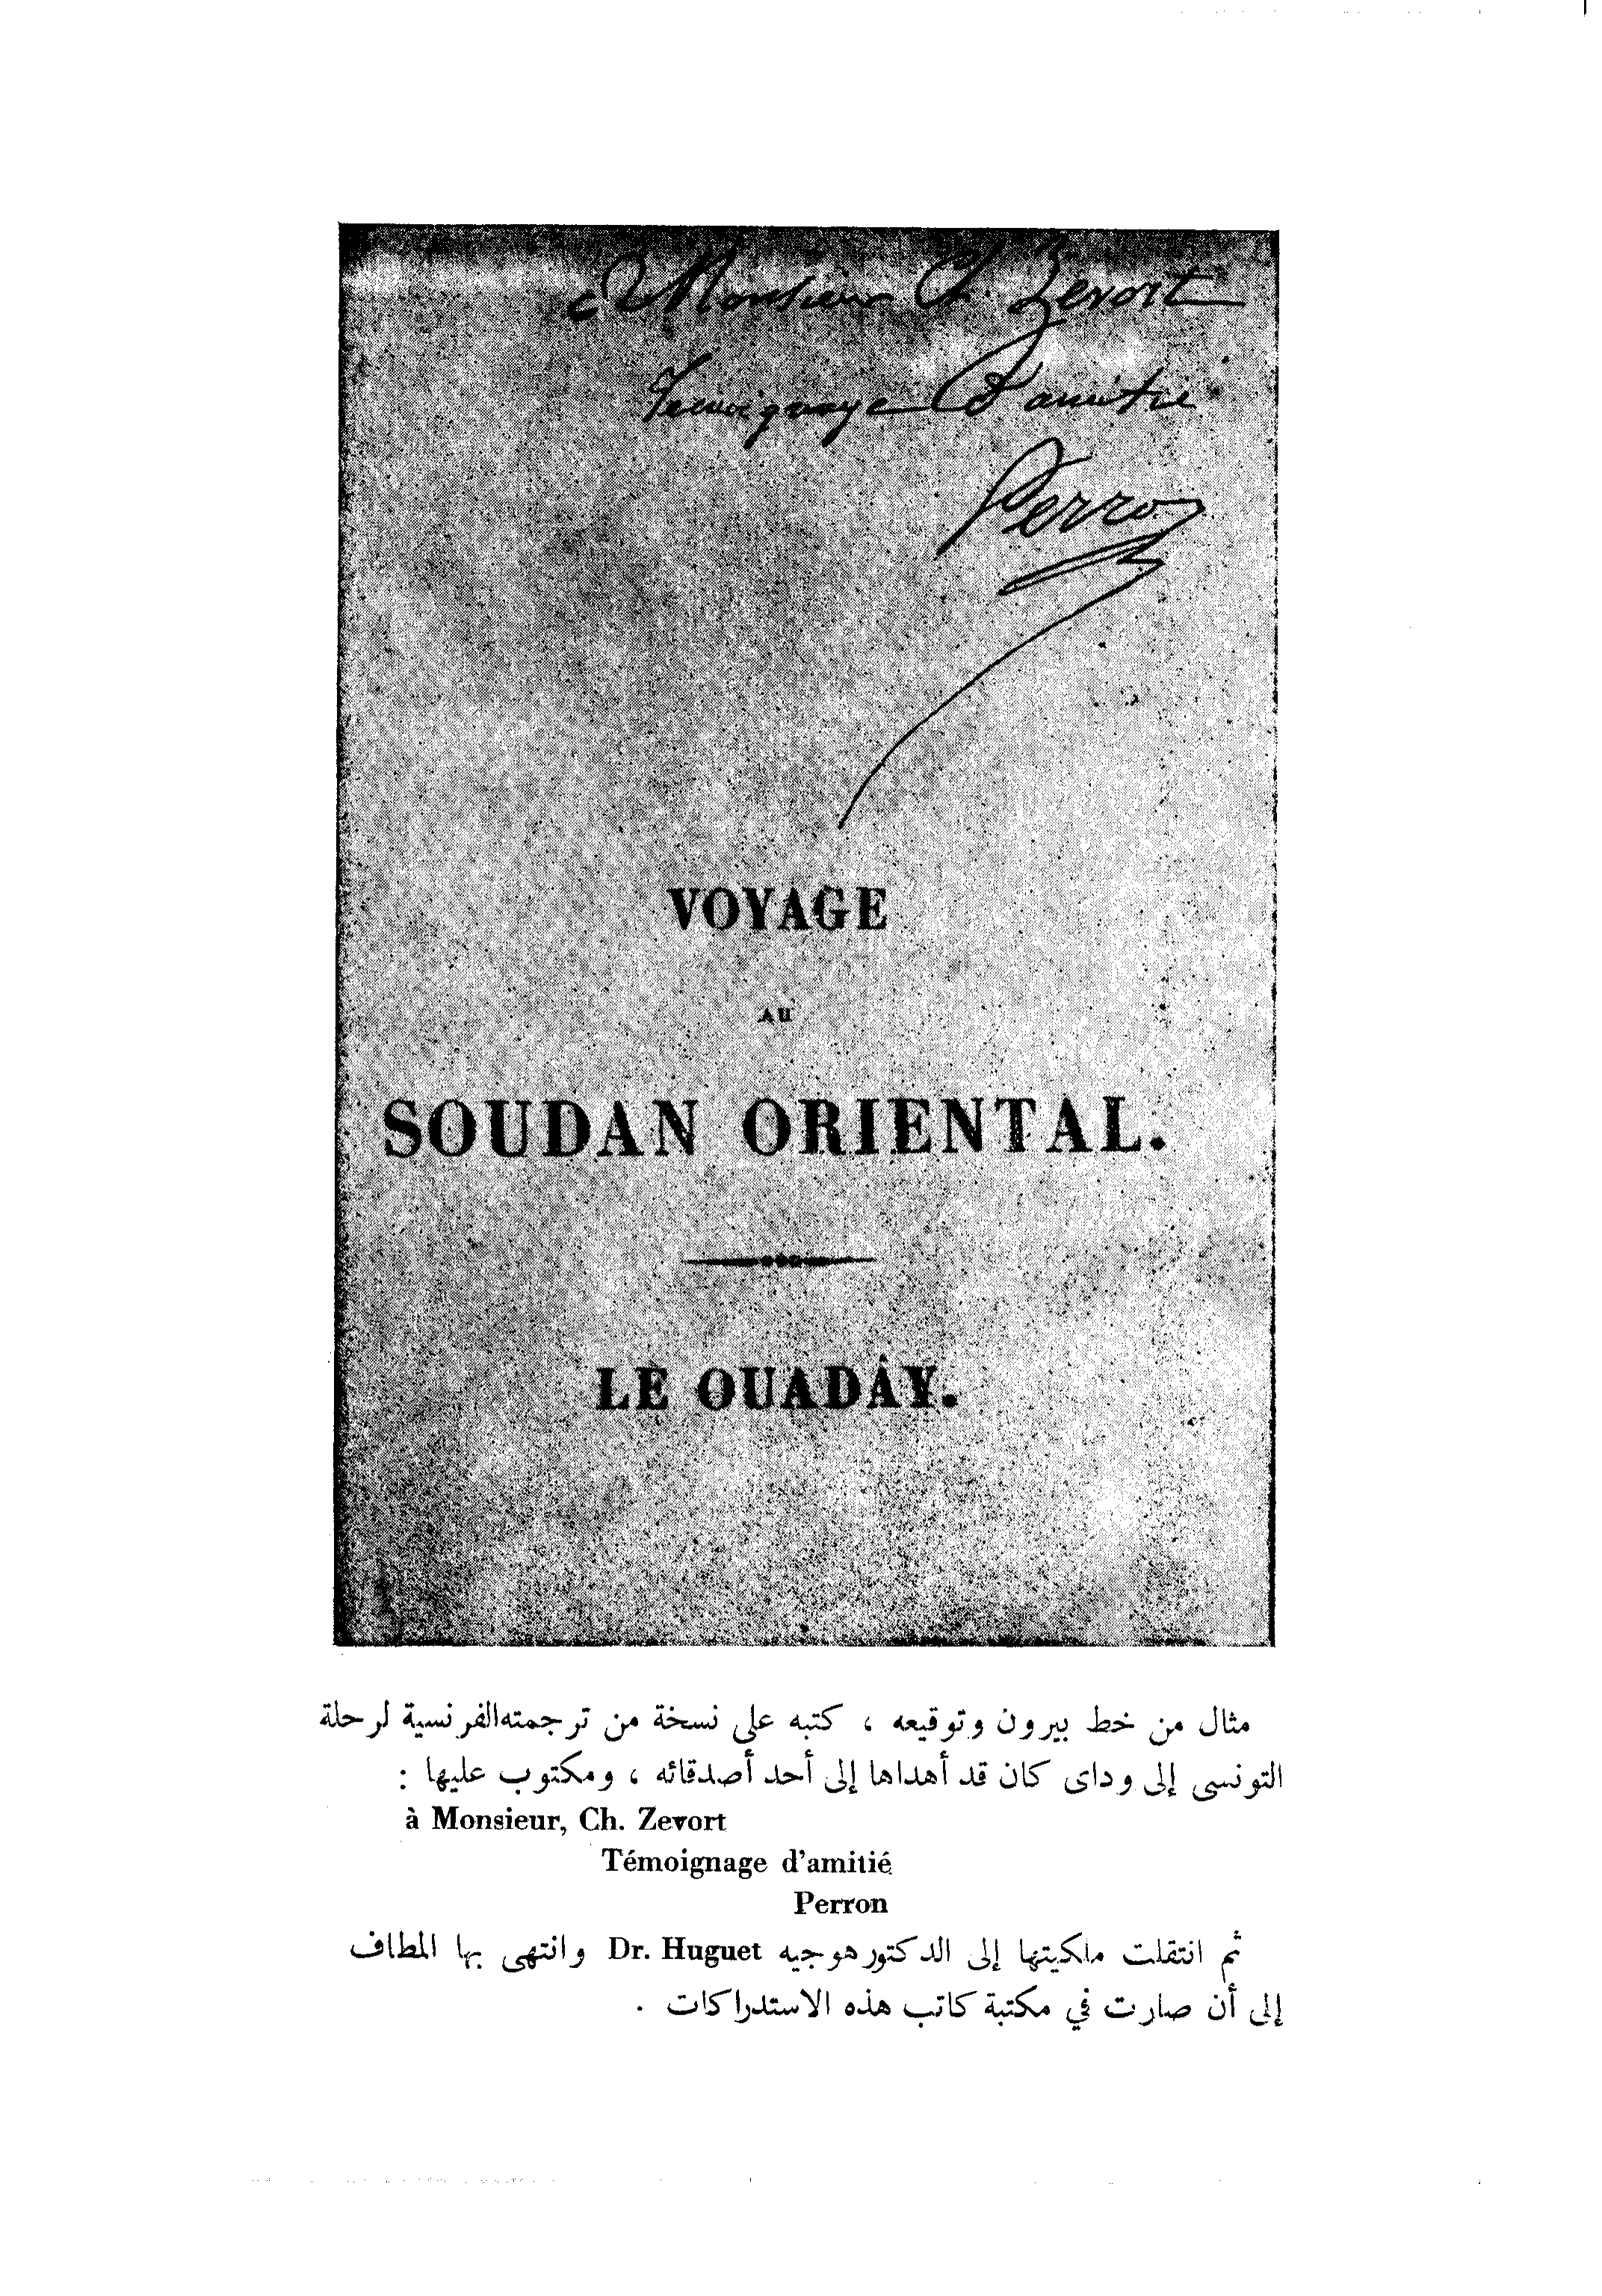 à Monsieur Ch. Zevort
Témoignage d'amitié
Perron
VOYAGE
AU
SOUDAN ORIENTAL.
LE OUADÂY.
مثال من خط بيرون وتوقيعه ، كتبه على نسخة من ترجمته الفرنسية لرحلة
التونسى إلى وداى كان قد أهداها إلى أحد أصدقائه ، ومكتوب عليها :
à Monsieur, Ch. Zevort
Témoignage d'amitié
Perron
ثم انتقلت ملكيتها إلى الدكتور هوجيه Dr. Huguet وانتهى بها المطاف
إلى أن صارت في مكتبة كاتب هذه الاستدراكات .